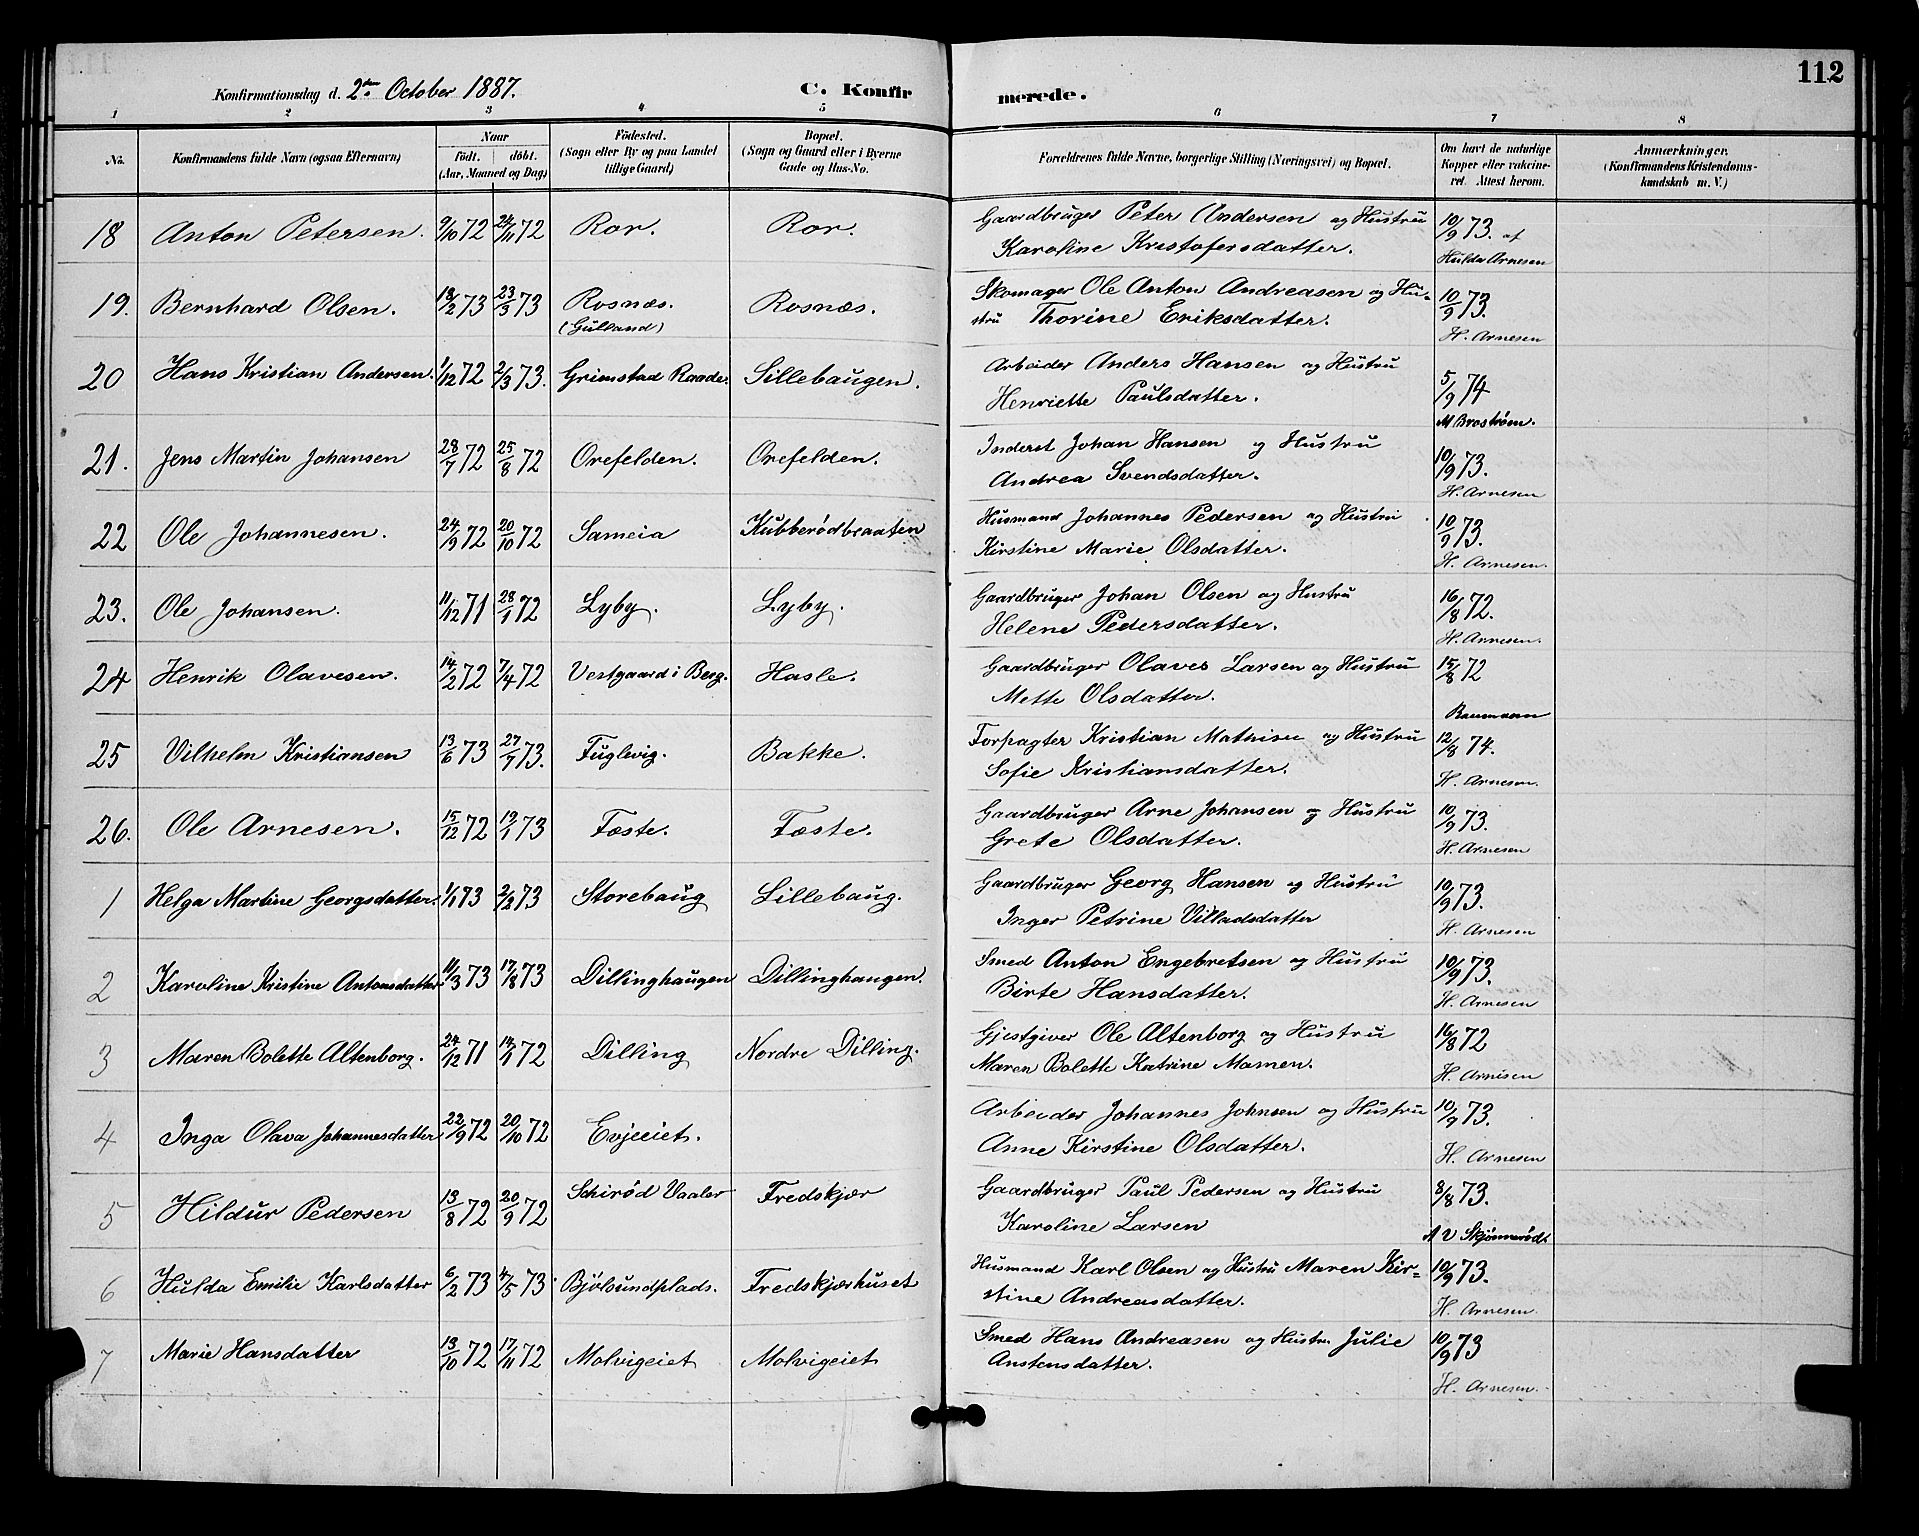 112
Konfirmationsdag d. 2den October 1887.
C. Konfirmerede.
1 2 3 4 5 6 7 8
No.
Konfirmandens fulde Navn (ogsaa Efternavn)
Naar
födt. döbt.
(Aar, Maaned og Dag)
Födested.
(Sogn eller By og paa Landet
tillige Gaard)
Bopæl.
(Sogn og Gaard eller i Byerne
Gade og Hus-No.
Forældrenes fulde Navne, borgerlige Stilling (Næringsvei) og Bopæl.
Om havt de naturlige
Kopper eller vakcine-
ret. Attest herom.
Anmærkninger.
(Konfirmandens Kristendoms-
kundskab m. V.)
18 Anton Petersen. 9/10 72 24/11 72 Ror. Ror. Gaardbruger Peter Andersen og Hustru
Karoline Kristofersdatter. 10/9 73. af
Hulda Arnesen
19. Bernhard Olsen. 18/2 73 23/3 73 Rosnæs. Rosnæs. Skomager Ole Anton Andreasen og Hu-
(Gulland) stru Thorine Eriksdatter. 10/9 73.
H. Arnesen
20 Hans Kristian Andersen. 1/12 72 2/3 73. Grimstad Raade. Lillebaugen. Arbeider Anders Hansen og Hustru
Henriette Paulsdatter. 5/9 74
M Broström.
21. Jens Martin Johansen 28/7 72 25/8 72 Orefelden. Orefelden. Inderst Johan Hansen og Hustru
Andrea Svendsdatter. 10/9 73.
H. Arnesen
22 Ole Johannesen. 24/9 72 20/10 72 Sameia Kubberødbraaten Husmand Johannes Pedersen og Hustru
Kirstine Marie Olsdatter. 10/9 73.
H. Arnesen.
23. Ole Johansen. 11/12 71 28/1 72 Lyby. Lyby. Gaardbruger Johan Olsen og Hustru
Helene Pedersdatter. 16/8 72.
H. Arnesen.
24 Henrik Olavesen. 14/2 72 7/4 72 Vestgaard i Berg. Hasle. Gaardbruger Olaves Larsen og Hustru
Mette Olsdatter. 15/8 72
Baumann
25 Vilhelm Kristiansen 13/6 73 27/7 73. Fuglevig. Bakke. Forpagter Kristian Mathisen og Hustru
Sofie Kristiansdatter. 12/8 74.
H. Arnesen.
26. Ole Arnesen. 15/12 72 19/1 73 Fæste. Fæste. Gaardbruger Arne Johansen og Hustru
Grete Olsdatter. 10/9 73.
H. Arnesen
1 Helga Martine Georgsdatter. 1/1 73 2/2 73 Storebaug Lillebaug. Gaardbruger Georg Hansen og Hustru
Inger Petrine Villadsdatter 10/9 73.
H. Arnesen
2 Karoline Kristine Antonsdatter. 11/3 73 17/8 73 Dillinghaugen Dillinghaugen. Smed Anton Engebretsen og Hustru
Birte Hansdatter. 10/9 73.
H. Arnesen
3 Maren Bolette Altenborg. 24/12 71 14/1 72 Dilling Nordre Dilling. Gjestgiver Ole Altenborg og Hustru
Maren Bolette Katrine Mamen. 16/8 72
H. Arnesen
4 Inga Olava Johannesdatter 22/9 72 20/10 72 Evjeeiet. Arbeider Johannes Johnsen og Hustru
Anne Kirstine Olsdatter. 10/9 73.
H. Arnesen
5 Hildur Pedersen 13/8 72 20/9 72 Schirød Vaaler Fredskjær Gaardbruger Paul Pedersen og Hustru
Karoline Larsen 8/8 73.
A V Skjønnerød.
6 Hulda Emilie Karlsdatter 6/2 73 4/5 73 Bjölsundplads. Fredskjærhuset Husmand Karl Olsen og Hustru Maren Kir=
stine Andreasdatter. 10/9 73.
H. Arnesen.
7 Marie Hansdatter 13/10 72 17/11 72 Molvigeiet Molvigeiet Smed Hans Andreasen og Hustr. Julie
Anstensdatter. 10/9 73
H. Arnesen.